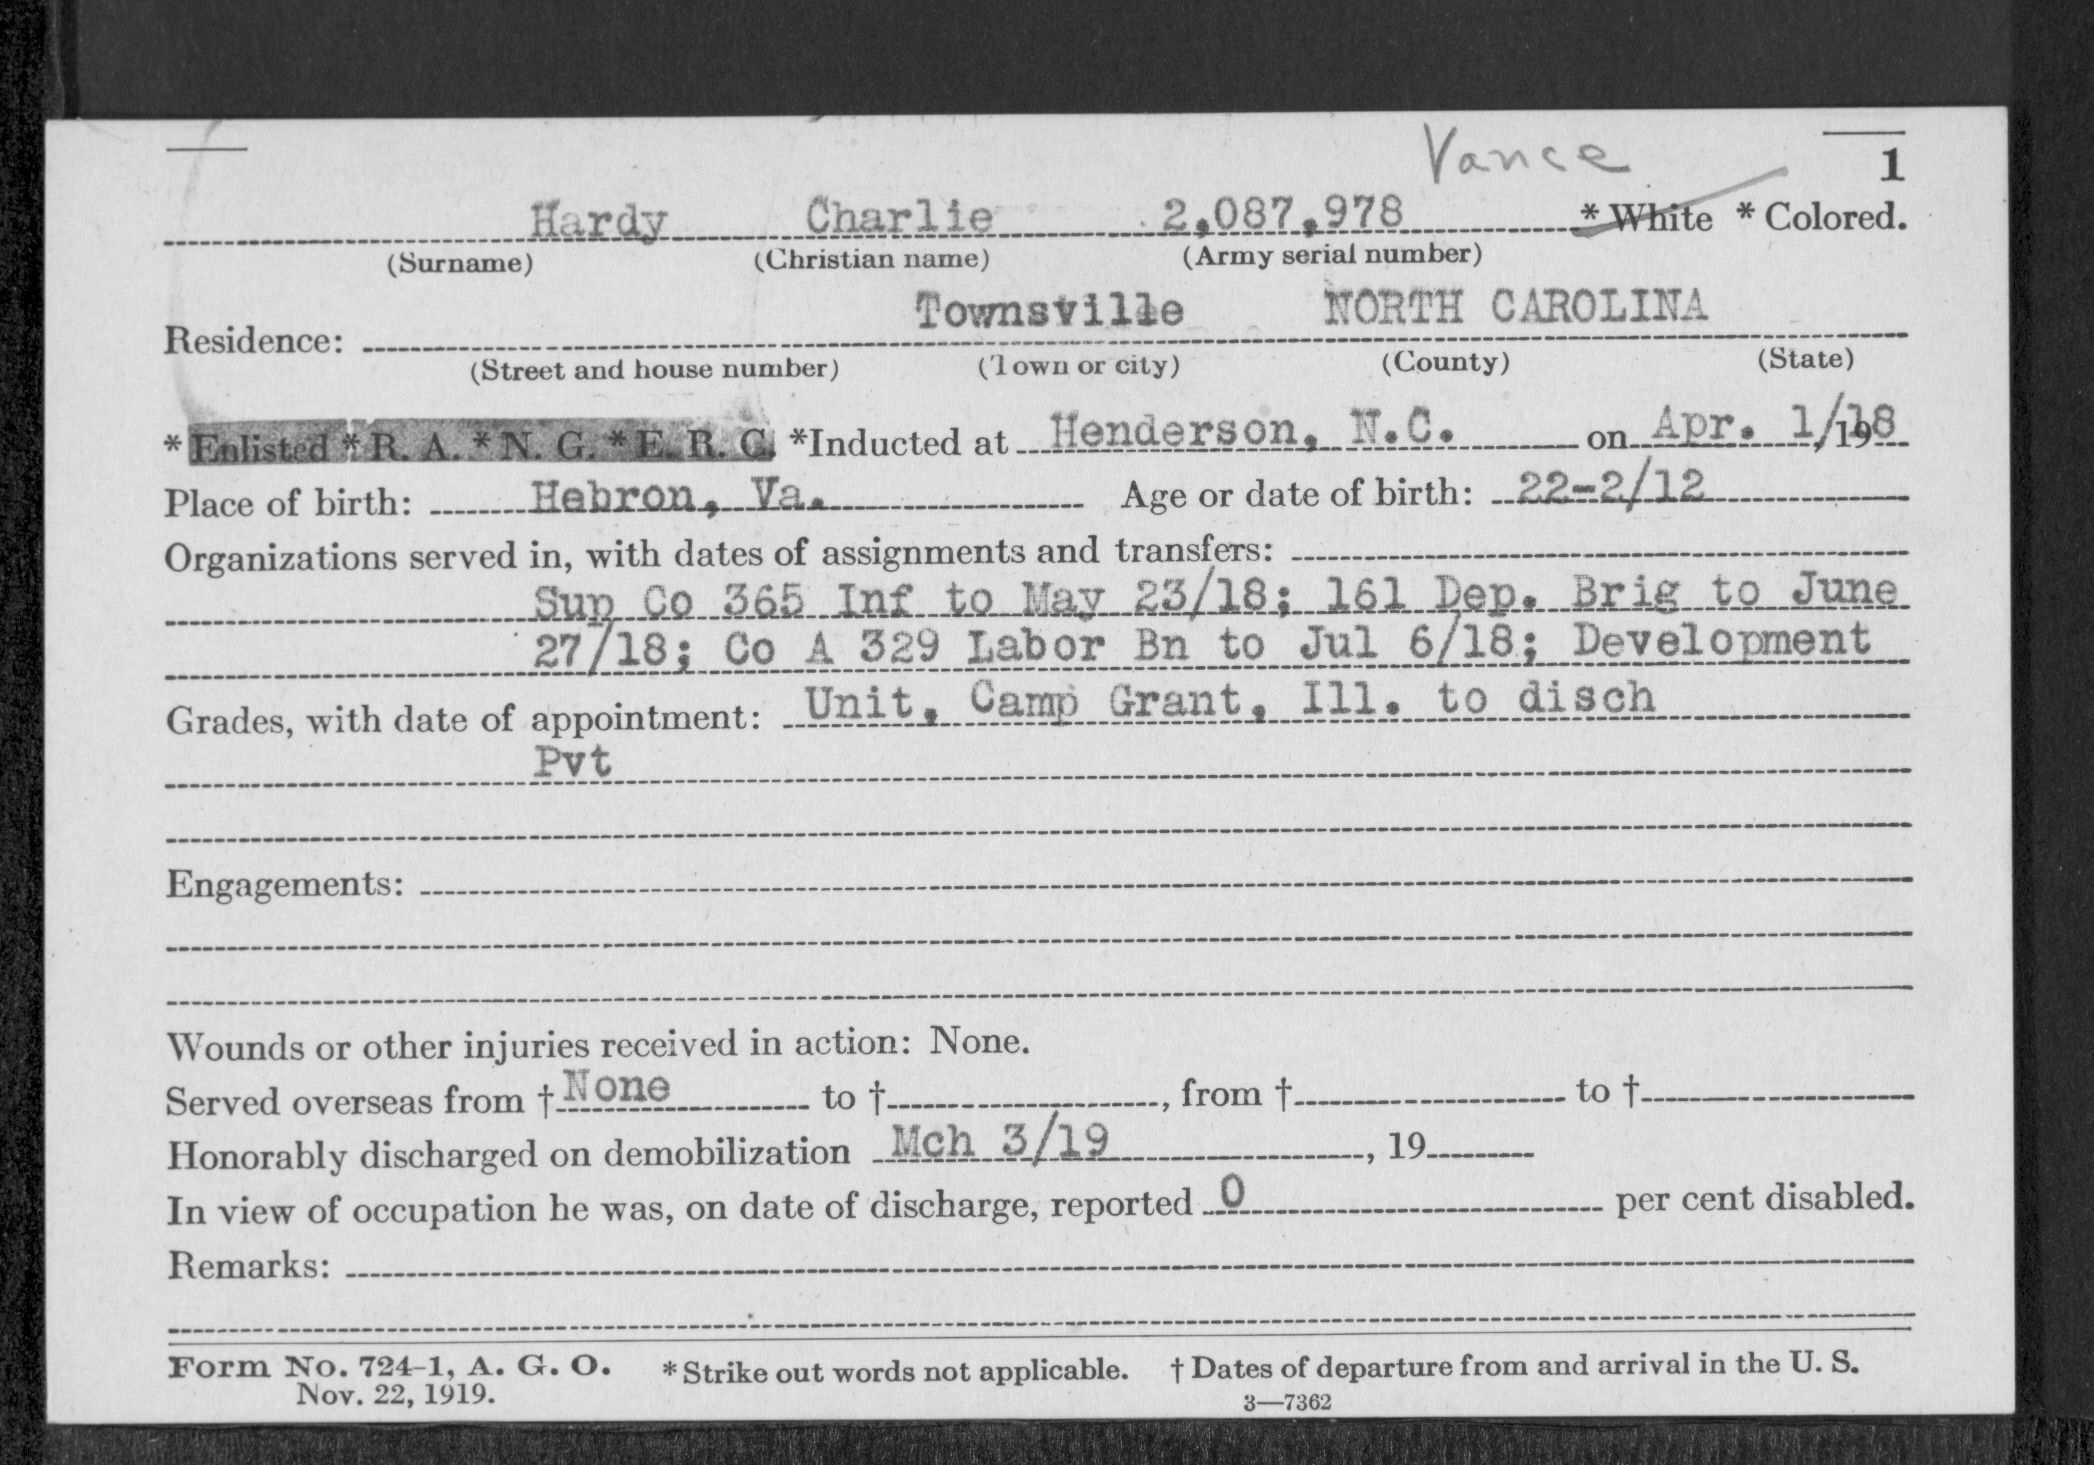 Vance
1
Hardy Charlie 2,087,978 * White * Colored.
(Surname) (Christian name) (Army serial number)
Townsville NORTH CAROLINA
Residence:
(Street and house number) (Town or city) (County) (State)
* Enlisted * R. A. * N. G. * E. R. C. *Inducted at Henderson, N.C. on Apr. 1/18, 19
Place of birth: Hebron, Va. Age or date of birth: 22-2/12
Organizations served in, with dates of assignments and transfers:
Sup Co 365 Inf to May 23/18; 161 Dep. Brig to June
27/18; Co A 329 Labor Bn to Jul 6/18; Development
Grades, with date of appointment: Unit, Camp Grant, Ill. to disch
Pvt
Engagements:
Wounds or other injuries received in action: None.
Served overseas from † None to †, from † to †
Honorably discharged on demobilization Mch 3/19, 19
In view of occupation he was, on date of discharge, reported 0 per cent disabled.
Remarks:
Form No. 724-1, A. G. O. * Strike out words not applicable. † Dates of departure from and arrival in the U. S.
Nov. 22, 1919. 3—7362